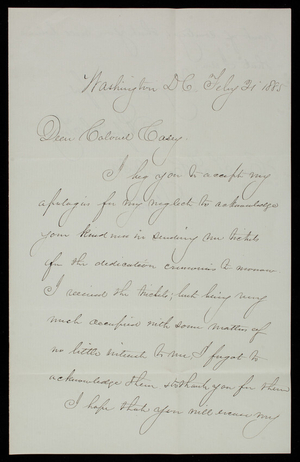 Washington D C Feby 21 1885
Dear Colonel Casey.
I beg you to accept my
apologies for my neglect to acknowledge
your kindness in sending me tickets
for the dedication ceremonies
I received the tickets, but being very
much occupied with some matters of
no little interest to me I forgot to
acknowledge them & thank you for them
I hope that you will excuse my